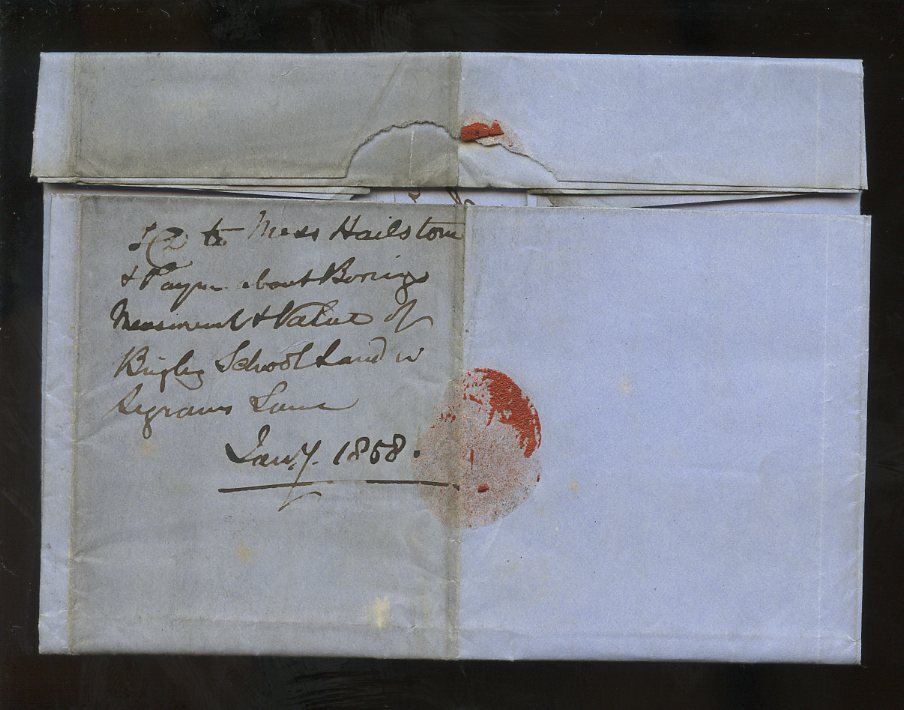 to Mess Hailstone
& Payne about Borings
Measment & Value of
Bingley School Land in
Lane
Jany. 1858.